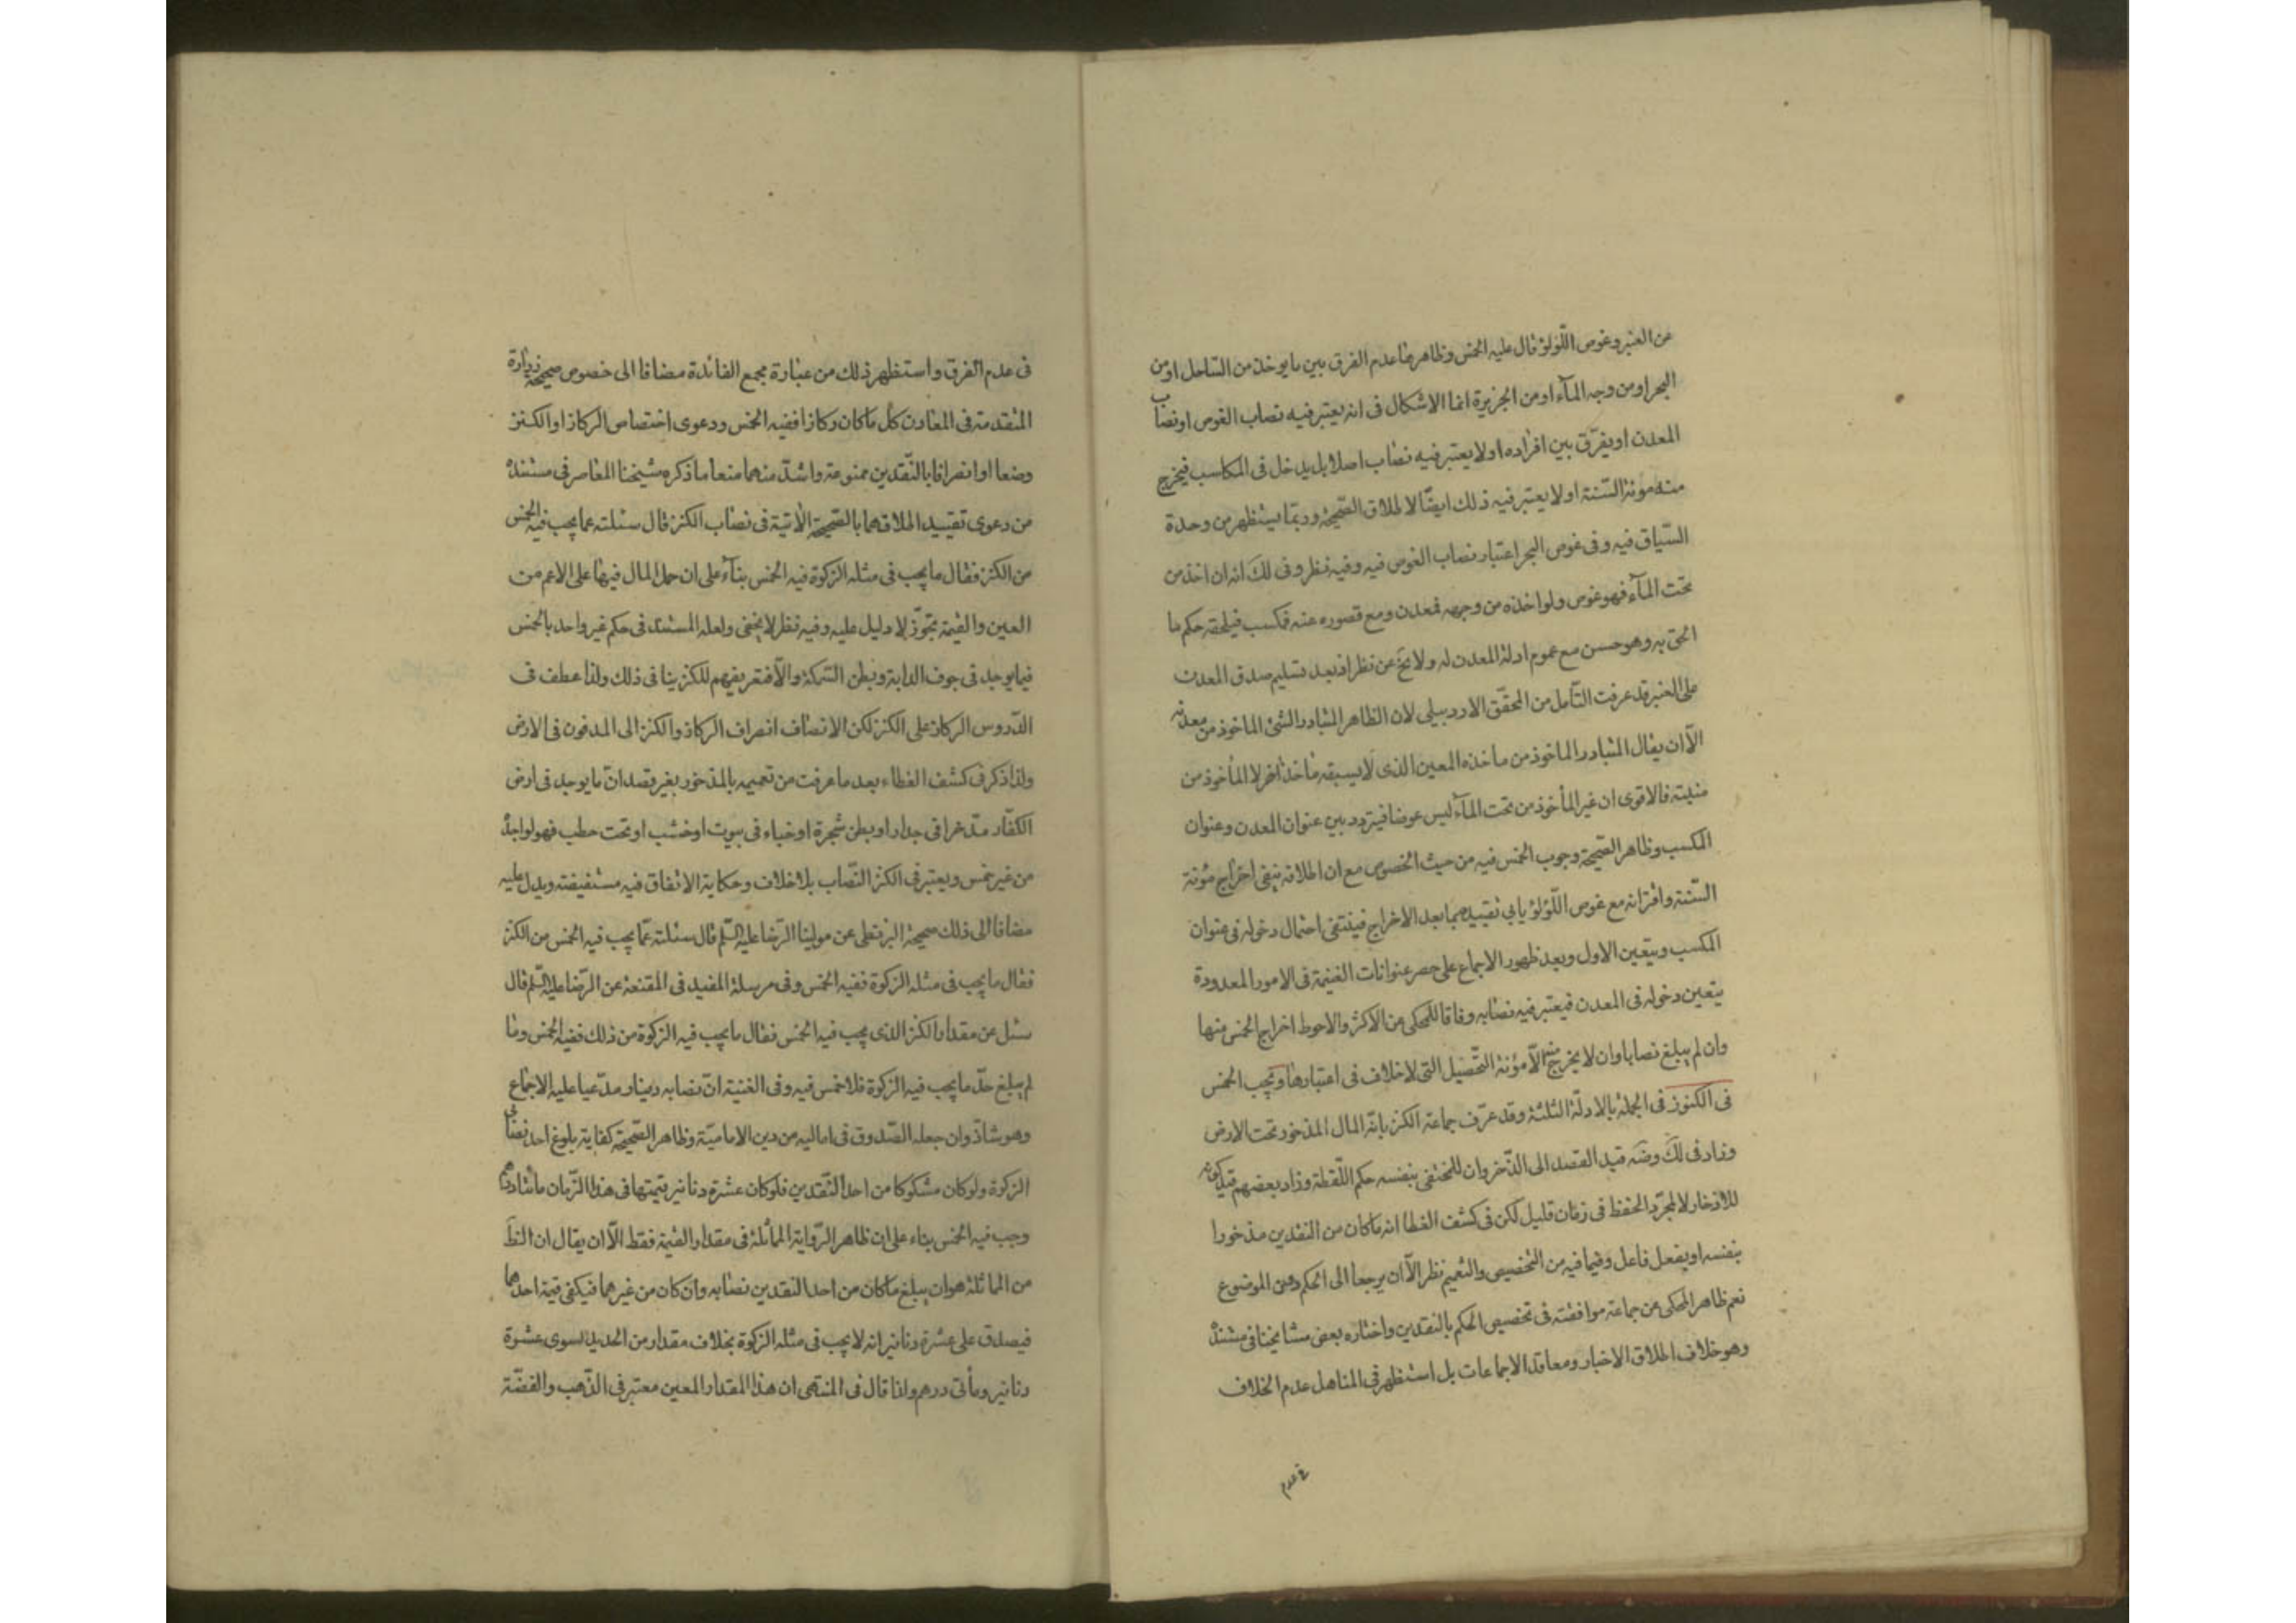 عن العنبر وغوص اللّؤلؤ قال عليه الخمس وظاهرها عدم الفرق بين ما يوخذ من السّاحل او من
البحر او من وجه المآء او من الجزيرة انما الاشكال فى انه يعتبر فيه نصاب الغوص او نصاب
المعدن او يفرّق بين افراده او لا يعتبر فيه نصاب اصلا بل يدخل فى المكاسب فيخرج
منه مونة السّنة او لا يعتبر فيه ذلك ايضًا لاطلاق الصّحيحة وربّما يستظهر من وحدة
السّياق فيه وفى غوص البحر اعتبار نصاب الغوص فيه وفيه نظر وفى لك انه ان اخذ من
تحت المآء فهو غوص ولو اخذه من وجهه فمعدن ومع قصوره عنه فمكسب فيلحقه حكم ما
الحق به وهو حسن مع عموم ادلة المعدن له ولا يخ عن نظر اذ بعد تسليم صدق المعدن
على العنبر قد عرفت التّامل من المحقّق الاردبيلى لان الظاهر المتبادر الشئ الماخوذ من معدنه
الّا ان يقال المتبادر الماخوذ من ماخذه المعين الذى لا يسبقه ماخذ اخر لا المأخوذ من
منبته فالاقوى ان غير المأخوذ من تحت المآء ليس غوصا فيتردد بين عنوان المعدن وعنوان
المكسب وظاهر الصّحيحة وجوب الخمس فيه من حيث الخصوص مع ان اطلاقه ينفى اخراج مؤنة
السّنة واقترانه مع غوص اللّؤلؤ يابى تقييدهما بعد الاخراج فينتفى احتمال دخوله فى عنوان
المكسب ويتعين الاول وبعد ظهور الاجماع على حصر عنوانات الغنيمة فى الامور المعدودة
يتعين دخوله فى المعدن فيعتبر فيه نصابه وفاقا للمحكى عن الاكثر والاحوط اخراج الخمس منها
وان لم يبلغ نصابا وان لا يخرج منها الّا مؤنة التّحصيل التى لا خلاف فى اعتبارها ويجب الخمس
فى الكنوز فى الجملة بالادلّة الثلثة وقد عرّف جماعة الكنز بانّه المال المذخور تحت الارض
وزاد فى لك وضه قيد القصد الى الذّخر وان للمختفى بنفسه حكم اللّقطة وزاد بعضهم قيد كونه
للادخار لا لمجرّد الحفظ فى زمان قليل لكن فى كشف الغطا انه ما كان من النقدين مذخورا
بنفسه او بفعل فاعل وفيما فيه من التّخصيص والتعميم نظر الّا ان يرجعا الى الحكم دون الموضوع
نعم ظاهر المحكى عن جماعة موافقته فى تخصيص الحكم بالنقدين واختاره بعض مشايخنا فى مستنده
وهو خلاف اطلاق الاخبار ومعاقد الاجماعات بل استظهر فى المناهل عدم الخلاف
فى عدم
فى عدم الفرق واستظهر ذلك من عبارة مجمع الفائدة مضافا الى خصوص صحيحة زرارة
المتقدمة فى المعادن كل ما كان ركازا ففيه الخمس ودعوى اختصاص الركاز او الكنز
وضعا او انصرافا بالنّقدين ممنوعة واشدّ منهما منعا ما ذكره شيخنا المعاصر فى مستنده
من دعوى تقييد اطلاقهما بالصّحيحة الاتية فى نصاب الكنز قال سئلته عما يجب فيه الخمس
من الكنز فقال ما يجب فى مثله الزكوة فيه الخمس بنآء على ان حمل المال فيها على الاعم من
العين والقيمة تجوّز لا دليل عليه وفيه نظر لا يخفى ولعله المستند فى حكم غير واحد بالخمس
فيما يوجد فى جوف الدابة وبطن السّمكة والّا فتعريفهم للكنز ينافى ذلك ولذا عطف فى
الدّروس الركاز على الكنز لكن الانصاف انصراف الركاز والكنز الى المدفون فى الارض
ولذا ذكر فى كشف الغطاء بعد ما عرفت من تعميمه بالمذخور بغير قصد انّ ما يوجد فى ارض
الكفّار مدّخرا فى جدار او بطن شجرة او خباء فى بيوت او خشب او تحت حطب فهو لواجده
من غير خمس ويعتبر فى الكنز النّصاب بلا خلاف وحكاية الاتفاق فيه مستفيضة ويدل عليه
مضافا الى ذلك صحيحة البزنطى عن مولينا الرّضا عليه السّلم قال سئلته عمّا يجب فيه الخمس من الكنز
فقال ما يجب فى مثله الزكوة ففيه الخمس وفى مرسلة المفيد فى المقنعة عن الرّضا عليه السّلم قال
سئل عن مقدار الكنز الذى يجب فيه الخمس فقال ما يجب فيه الزكوة من ذلك ففيه الخمس وما
لم يبلغ حدّ ما يجب فيه الزكوة فلا خمس فيه وفى الغنية انّ نصابه دينار مدّعيا عليه الاجماع
وهو شاذّ وان جعله الصّدوق فى اماليه من دين الاماميّة وظاهر الصّحيحة كفاية بلوغ احد نصابى
الزكوة ولو كان مشكوكا من احد النّقدين فلو كان عشرة دنانير قيمتها فى هذا الزّمان مائتا درهم
وجب فيه الخمس بناء على ان ظاهر الرّواية المماثلة فى مقدار القيمة فقط الّا ان يقال ان الظ
من المماثلة هو ان يبلغ ما كان من احد النقدين نصابه وان كان من غيرهما فيكفى قيمة احدهما
فيصدق على عشرة دنانير انه لا يجب فى مثله الزكوة بخلاف مقدار من الحديد يسوى عشرة
دنانير ومأتى درهم ولذا قال فى المنتهى ان هذا المقدار المعين معتبر فى الذّهب والفضّة